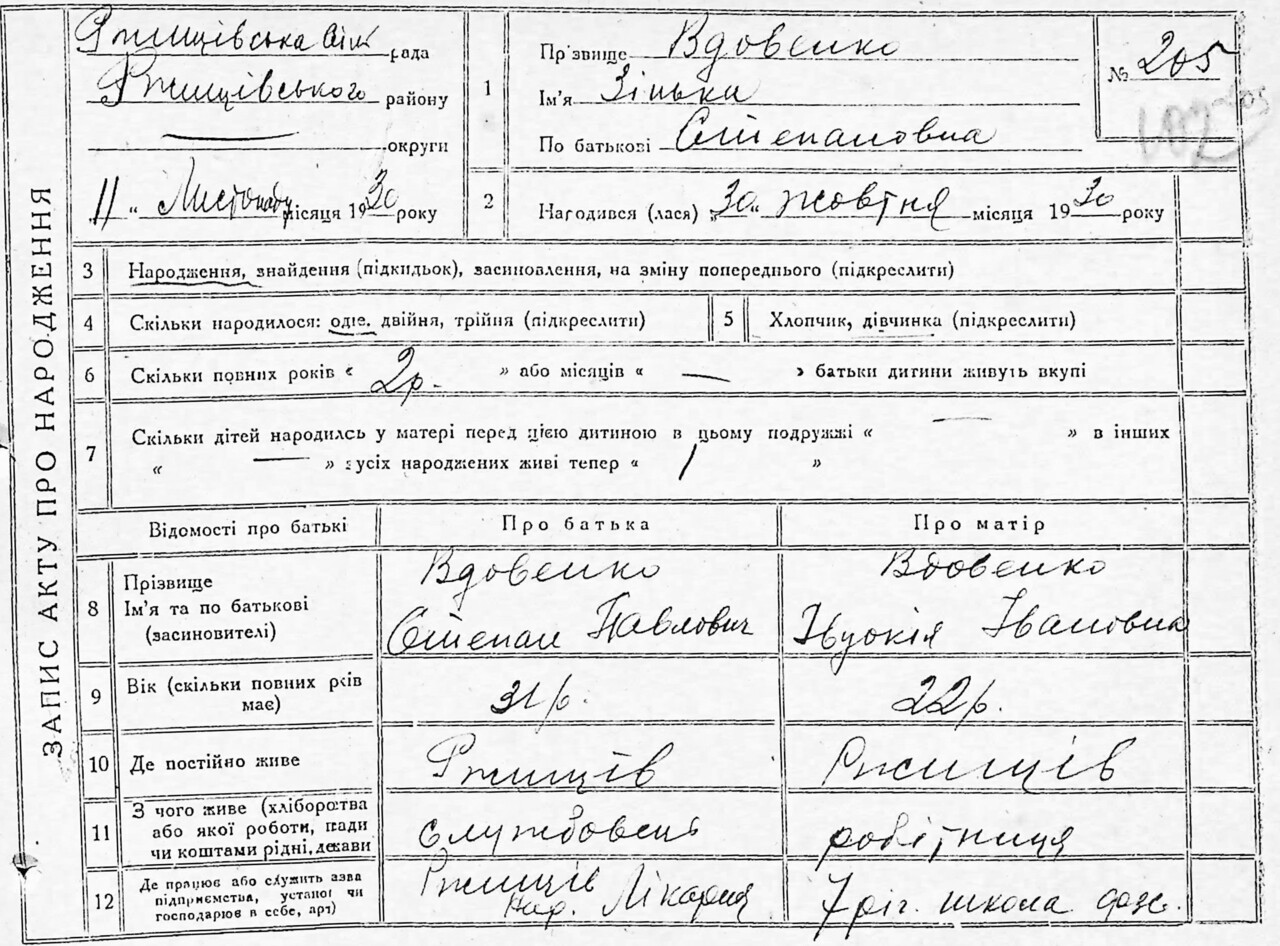 ЗАПИС АКТУ ПРО НАРОДЖЕННЯ
Ржищівська сіл рада
Ржищівського району
— округи
11 „ Листопаду місяця 1930 року
1
Пр'звище Вдовенко
Ім'я Зінька
По батькові Степановна
№ 205
2
Народився (лася) „30“ жовтня місяця 1930 року
3 Народження, знайдення (підкидьок), засиновлення, на зміну попереднього (підкреслити)
4 Скільки народилося: одне, двійня, трійня (підкреслити) 5 Хлопчик, дівчинка (підкреслити)
6 Скільки повних років « 2р. » або місяців « — » батьки дитини живуть вкупі
7 Скільки дітей народилсь у матері перед цією дитиною в цьому подружжі « — » в інших
« — » з усіх народжених живі тепер « 1 »
Відомості про батькі Про батька Про матір
8 Прізвище Ім'я та по батькові (засиновителі) Вдовенко Степан Павлович Вдовенко Івдокія Івановна
9 Вік (скільки повних рків має) 31р. 22р.
10 Де постійно живе Ржищів Ржищів
11 З чого живе (хліборобства або якої роботи, посади чи коштами рідні, держави службовець робітниця
12 Де працює або служить азва підприємства, установи чи господарює в себе, арт) Ржищів нар. Лікарня 7 річ. школа